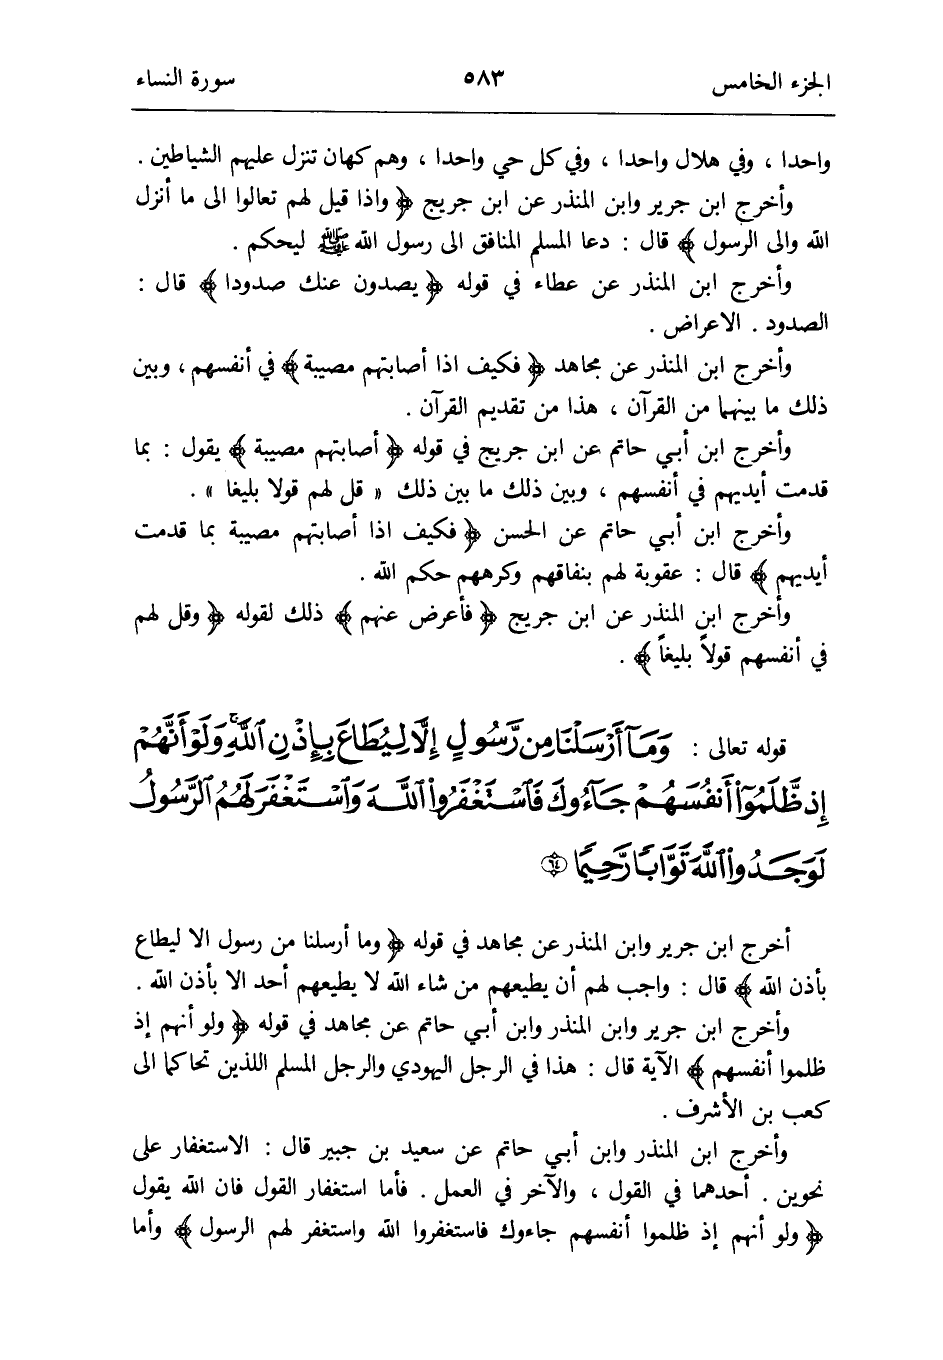 الجزء الخامس ٥٨٣ سورة النساء
واحدا ، وفي هلال واحدا ، وفي كل حي واحدا ، وهم كهان تنزل عليهم الشياطين .
وأخرج ابن جرير وابن المنذر عن ابن جريج ﴿ واذا قيل لهم تعالوا الى ما أنزل
الله والى الرسول ﴾ قال : دعا المسلم المنافق الى رسول الله ﷺ ليحكم .
وأخرج ابن المنذر عن عطاء في قوله ﴿ يصدون عنك صدودا ﴾ قال :
الصدود . الاعراض .
وأخرج ابن المنذر عن مجاهد ﴿ فكيف اذا أصابتهم مصيبة ﴾ في أنفسهم ، وبين
ذلك ما بينهما من القرآن ، هذا من تقديم القرآن .
وأخرج ابن أبي حاتم عن ابن جريج في قوله ﴿ أصابتهم مصيبة ﴾ يقول : بما
قدمت أيديهم في أنفسهم ، وبين ذلك ما بين ذلك « قل لهم قولا بليغا » .
وأخرج ابن أبي حاتم عن الحسن ﴿ فكيف اذا أصابتهم مصيبة بما قدمت
أيديهم ﴾ قال : عقوبة لهم بنفاقهم وكرههم حكم الله .
وأخرج ابن المنذر عن ابن جريج ﴿ فأعرض عنهم ﴾ ذلك لقوله ﴿ وقل لهم
في أنفسهم قولاً بليغاً ﴾ .
قوله تعالى : وَمَآ أَرْسَلْنَا مِن رَّسُولٍ إِلَّا لِيُطَاعَ بِإِذْنِ ٱللَّهِ ۚ وَلَوْ أَنَّهُمْ
إِذ ظَّلَمُوٓا۟ أَنفُسَهُمْ جَآءُوكَ فَٱسْتَغْفَرُوا۟ ٱللَّهَ وَٱسْتَغْفَرَ لَهُمُ ٱلرَّسُولُ
لَوَجَدُوا۟ ٱللَّهَ تَوَّابًا رَّحِيمًا ٦٤
أخرج ابن جرير وابن المنذر عن مجاهد في قوله ﴿ وما أرسلنا من رسول الا ليطاع
بأذن الله ﴾ قال : واجب لهم أن يطيعهم من شاء الله لا يطيعهم أحد الا بأذن الله .
وأخرج ابن جرير وابن المنذر وابن أبي حاتم عن مجاهد في قوله ﴿ ولو أنهم إذ
ظلموا أنفسهم ﴾ الآية قال : هذا في الرجل اليهودي والرجل المسلم اللذين تحاكما الى
كعب بن الأشرف .
وأخرج ابن المنذر وابن أبي حاتم عن سعيد بن جبير قال : الاستغفار على
نحوين . أحدهما في القول ، والآخر في العمل . فأما استغفار القول فان الله يقول
﴿ ولو أنهم إذ ظلموا أنفسهم جاءوك فاستغفروا الله واستغفر لهم الرسول ﴾ وأما